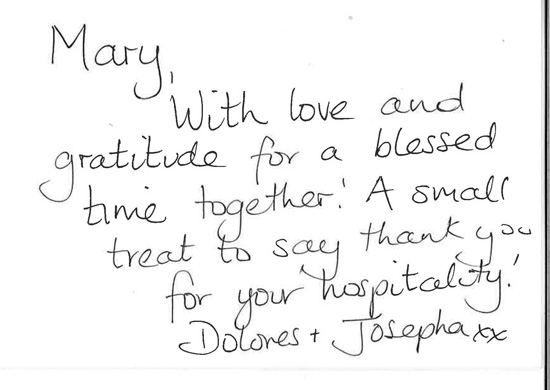 Mary,
With love and
gratitude for a blessed
time together! A small
treat to say thank you
for your hospitality!
Dolores + Josepha xx